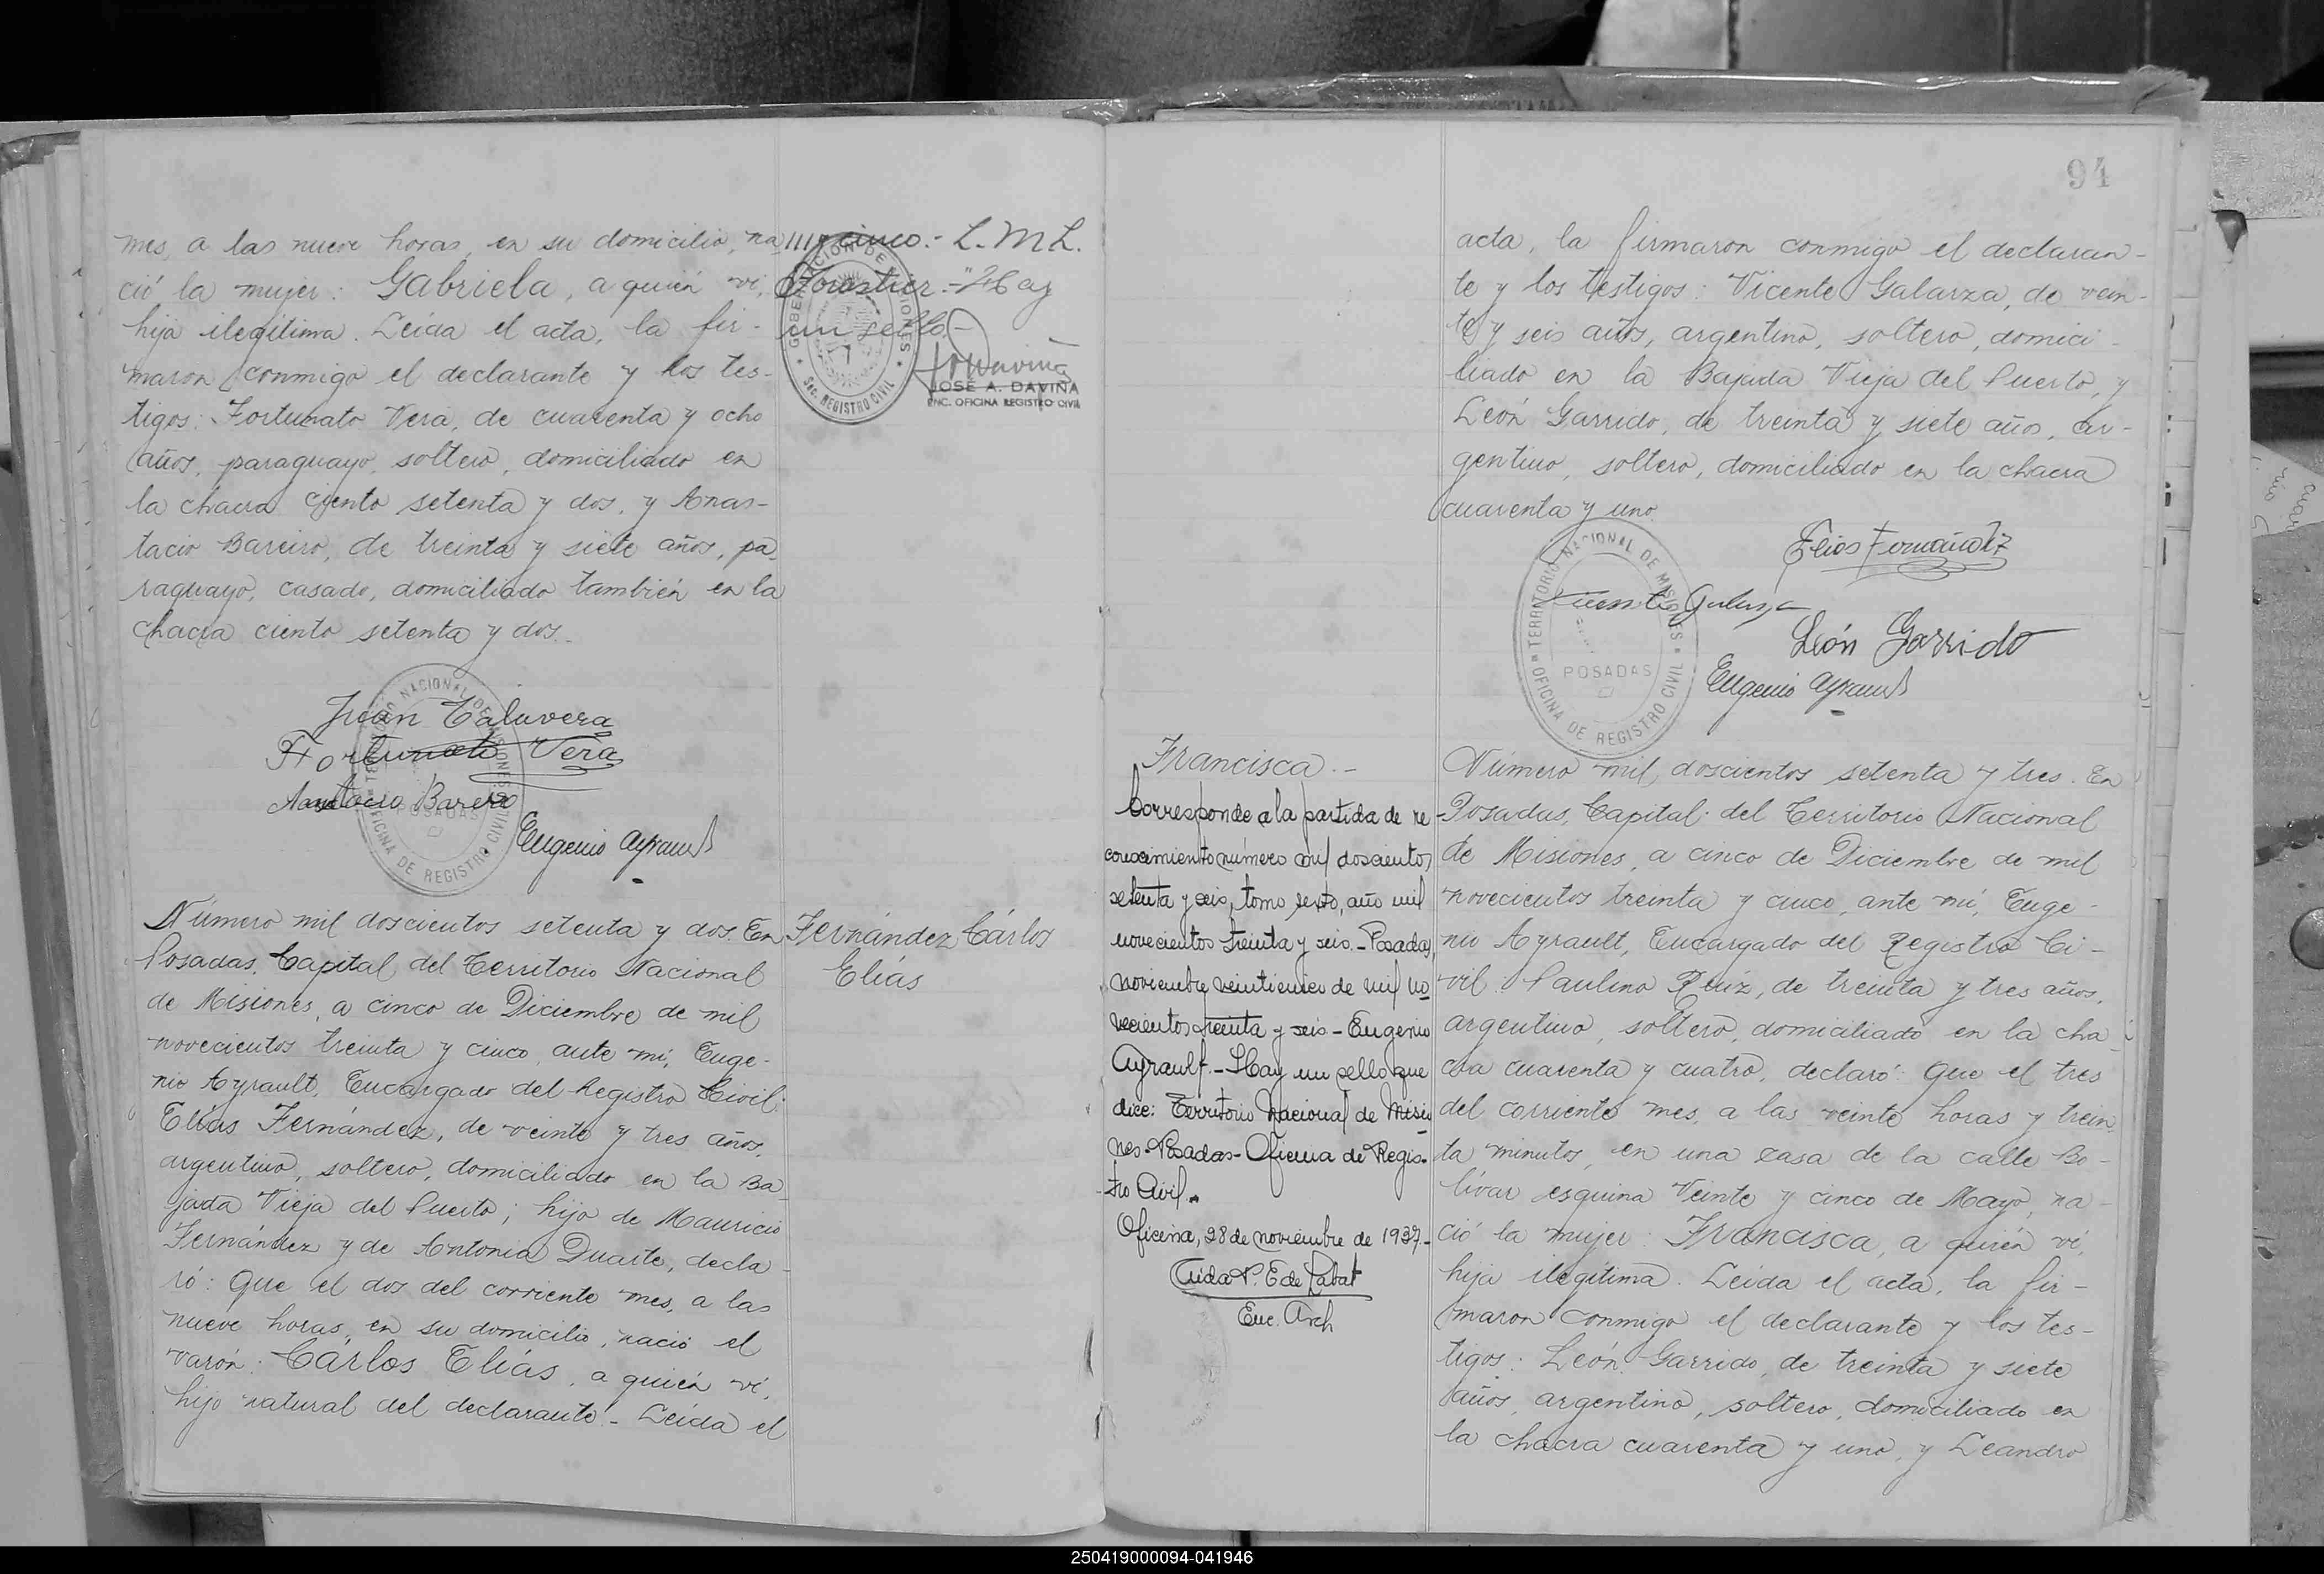 mes, a las nueve horas, en su domicilio, na
ció la mujer: Gabriela, a quién vi,
hija ilegítima. Leída el acta, la fir-
maron conmigo el declarante y los tes-
tigos: Fortunato Vera, de cuarenta y ocho
años, paraguayo, soltero, domiciliado en
la chacra ciento setenta y dos, y Anas-
tacio Bareiro, de treinta y siete años, pa-
raguayo, casado, domiciliado también en la
chacra ciento setenta y dos.-
Juan Talavera
Fortunato Vera
Anastacio Bareiro
Eugenio Ayrault
TERRITORIO NACIONAL DE MISIONES
POSADAS
OFICINA DE REGISTRO CIVIL
//// cinco.- L. M. L.
Forastier.- "Hay
un sello.-
GOBERNACION DE MISIONES
Sec. REGISTRO CIVIL
JOSÉ A. DAVIÑA
ENC. OFICINA REGISTRO CIVIL
Número mil doscientos setenta y dos. En
Posadas, Capital del Territorio Nacional
de Misiones, a cinco de Diciembre de mil
novecientos treinta y cinco, ante mí, Euge-
nio Ayrault, Encargado del Registro Civil:
Elías Fernández, de veinte y tres años,
argentino, soltero, domiciliado en la Ba
jada Vieja del Puerto; hijo de Mauricio
Fernández y de Antonia Duarte, decla-
ró: Que el dos del corriente mes, a las
nueve horas, en su domicilio, nació el
varón: Cárlos Elías, a quién ví,
hijo natural del declarante.- Leída el
Fernández Cárlos
Elías
94
acta, la firmaron conmigo el declaran-
te y los testigos: Vicente Galarza, de vein-
te y seis años, argentino, soltero, domici-
liado en la Bajada Vieja del Puerto, y
León Garrido, de treinta y siete años, ar-
gentino, soltero, domiciliado en la chacra
cuarenta y uno.
Elías Fernández
Vicente Galarza
León Garrido
Eugenio Ayrault
TERRITORIO NACIONAL DE MISIONES
POSADAS
OFICINA DE REGISTRO CIVIL
Francisca.-
Corresponde a la partida de re-
conocimiento número mil doscientos
setenta y seis, tomo sexto, año mil
novecientos treinta y seis.- Posadas,
noviembre veinticinco de mil no
vecientos treinta y seis - Eugenio
Ayrault.- Hay un sello que
dice: Territorio Nacional de Misio
nes - Posadas - Oficina de Regis-
tro Civil.
Oficina, 28 de noviembre de 1937-
Enc. Arch
Número mil doscientos setenta y tres. En
Posadas, Capital del Territorio Nacional
de Misiones, a cinco de Diciembre de mil
novecientos treinta y cinco, ante mí, Euge-
nio Ayrault, Encargado del Registro Ci-
vil: Paulino Ruiz, de treinta y tres años,
argentino, soltero, domiciliado en la cha-
cra cuarenta y cuatro, declaró: Que el tres
del corriente mes, a las veinte horas y trein
ta minutos, en una casa de la calle Bo-
lívar esquina Veinte y cinco de Mayo, na-
ció la mujer: Francisca, a quién ví,
hija ilegítima. Leída el acta, la fir-
maron conmigo el declarante y los tes-
tigos: León Garrido, de treinta y siete
años, argentino, soltero, domiciliado en
la chacra cuarenta y uno, y Leandro
250419000094-041946